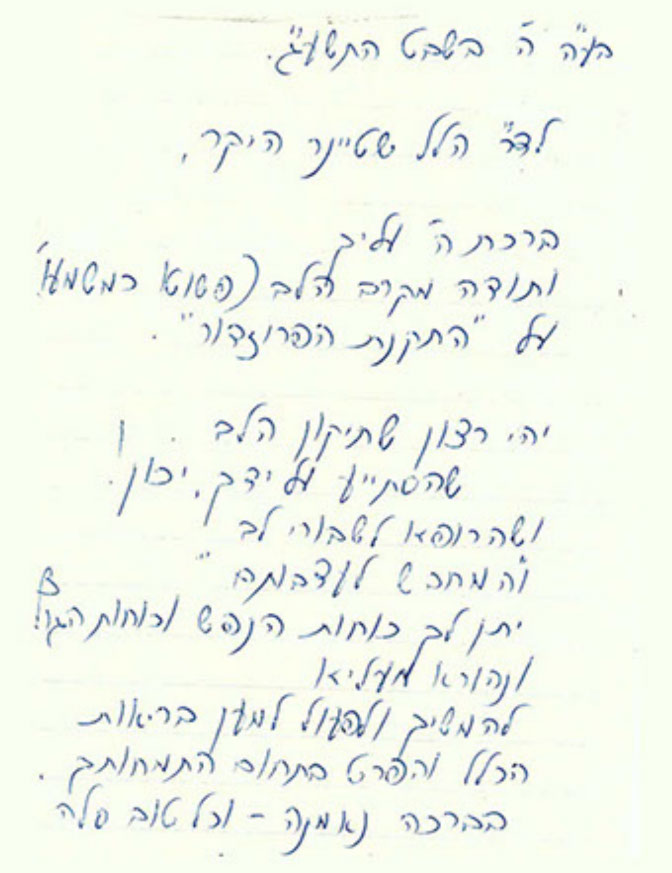 בע"ה ה' בשבט התשע"ג.
לד"ר הלל שטיינר היקר,
ברכת ה' עליך
ותודה מקרב הלב (פשוטו כמשמעו)
על "התקנת הפרוזדור".
יהי רצון שתיקון הלב
שהסתייע על ידך, יכון.
ושהרופא לשבורי לב
והמחבש לעצבותם"
יתן לך כוחות הנפש וכוחות הגוף
ונהורא מעליא
להמשיך ולפעול למען בריאות
הכלל והפרט בתחום התמחותך.
בברכה נאמנה - וכל טוב סלה